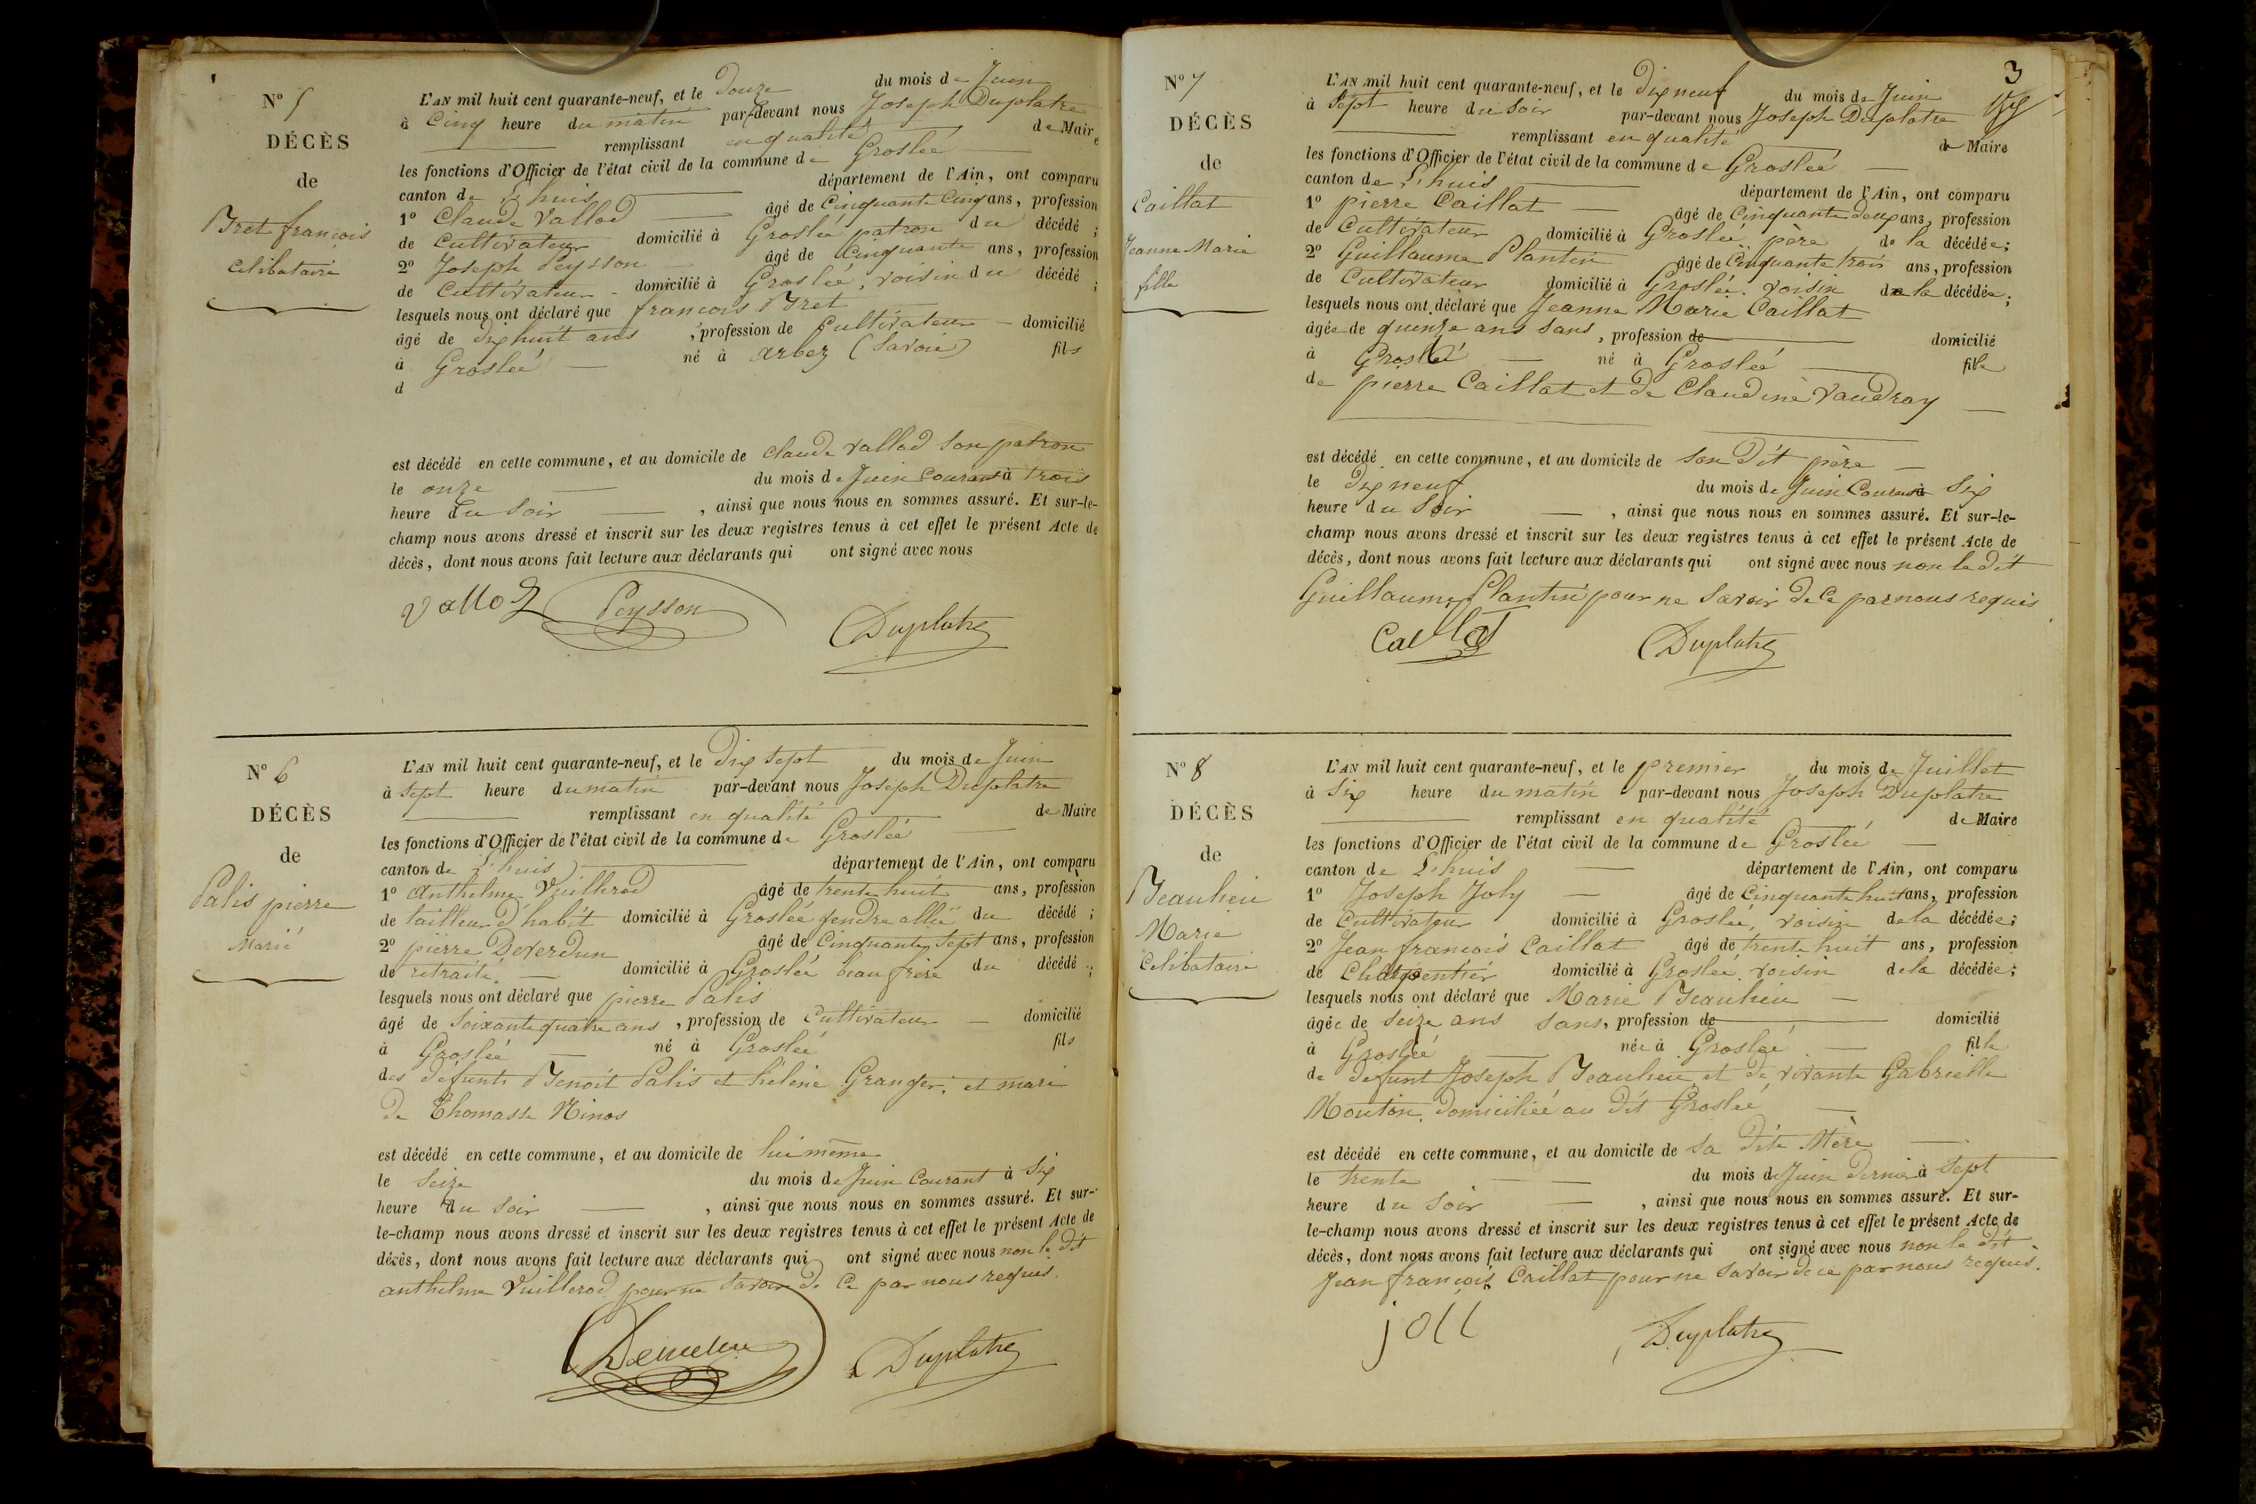 N° 5
DÉCÈS
de
Bret françois
celibataire
L'AN mil huit cent quarante-neuf, et le Douze du mois de Juin
à Cinq heure du matin par-devant nous Joseph Duplatre
remplissant en qualité de Maire
les fonctions d'Officier de l'état civil de la commune de Groslée
canton de L'huis département de l'Ain, ont comparu
1° Claude Vallod âgé de Cinquante Cinq ans, profession
de Cultivateur domicilié à Groslée patron du décédé ;
2° Joseph Peysson âgé de Cinquante ans, profession
de Cultivateur domicilié à Groslée, voisin du décédé ;
lesquels nous ont déclaré que françois Bret
âgé de Dix huit ans , profession de Cultivateur domicilié
à Groslée né à arbez (Savoie) fils
d
est décédé en cette commune, et au domicile de Claude Vallod Son patron
le onze du mois de Juin Courant à trois
heure du Soir , ainsi que nous nous en sommes assuré. Et sur-le-
champ nous avons dressé et inscrit sur les deux registres tenus à cet effet le présent Acte de
décès, dont nous avons fait lecture aux déclarants qui ont signé avec nous
Vallod Peysson
Duplatre
N° 6
DÉCÈS
de
Palis pierre
Marié
L'AN mil huit cent quarante-neuf, et le Dix Sept du mois de Juin
à Sept heure du matin par-devant nous Joseph Duplatre
remplissant en qualité de Maire
les fonctions d'Officier de l'état civil de la commune de Groslée
canton de L'huis département de l'Ain, ont comparu
1° Anthelme Vuillerod âgé de trente huit ans, profession
de tailleur d'habit domicilié à Groslée gendre allié du décédé ;
2° pierre Deverdun âgé de Cinquante Sept ans, profession
de retraité domicilié à Groslée beau frère du décédé ;
lesquels nous ont déclaré que pierre Palis
âgé de Soixante quatre ans , profession de Cultivateur domicilié
à Groslée né à Groslée fils
des défunts Benoit Palis et hélène Granger, et mari
de Thomasse Ninos
est décédé en cette commune, et au domicile de lui même
le Seize du mois de Juin Courant à Six
heure du Soir , ainsi que nous nous en sommes assuré. Et sur-
le-champ nous avons dressé et inscrit sur les deux registres tenus à cet effet le présent Acte de
décès, dont nous avons fait lecture aux déclarants qui ont signé avec nous non le dit
anthelme Vuillerod pour ne Savoir de Ce par nous requis.
Duplatre
3
N° 7
DÉCÈS
de
Caillat
Jeanne Marie
fille
L'AN mil huit cent quarante-neuf, et le Dix neuf du mois de Juin
à Sept heure du Soir par-devant nous Joseph Duplatre
remplissant en qualité de Maire
les fonctions d'Officier de l'état civil de la commune de Groslée
canton de L'huis département de l'Ain, ont comparu
1° pierre Caillat âgé de Cinquante deux ans, profession
de Cultivateur domicilié à Groslée père de la décédée ;
2° Guillaume Plantin âgé de Cinquante trois ans, profession
de Cultivateur domicilié à Groslée voisin de la décédée ;
lesquels nous ont déclaré que Jeanne Marie Caillat
âgée de quinze ans Sans , profession de domicilié
à Groslée né à Groslée fille
de pierre Caillat et de Claudine Vaudray
est décédé en cette commune, et au domicile de Son Dit père
le Dix neuf du mois de Juin Courant à Six
heure du Soir , ainsi que nous nous en sommes assuré. Et sur-le-
champ nous avons dressé et inscrit sur les deux registres tenus à cet effet le présent Acte de
décès, dont nous avons fait lecture aux déclarants qui ont signé avec nous non le dit
Guillaume Plantin pour ne Savoir de Ce par nous requis
Caillat
Duplatre
N° 8
DÉCÈS
de
Beaulieu
Marie
Celibataire
L'AN mil huit cent quarante-neuf, et le premier du mois de Juillet
à Six heure du matin par-devant nous Joseph Duplatre
remplissant en qualité de Maire
les fonctions d'Officier de l'état civil de la commune de Groslée
canton de L'huis département de l'Ain, ont comparu
1° Joseph Joly âgé de Cinquante huit ans, profession
de Cultivateur domicilié à Groslée, voisin de la décédée ;
2° Jean françois Caillat âgé de trente huit ans, profession
de Charpentier domicilié à Groslée voisin de la décédée ;
lesquels nous ont déclaré que Marie Beaulieu
âgée de Seize ans Sans, profession de domicilié
à Groslée née à Groslée fille
de défunt Joseph Beaulieu et de vivante Gabrielle
Mouton Domiciliée au Dit Groslée
est décédé en cette commune, et au domicile de Sa Dite Mère
le trente du mois de Juin Dernier à Sept
heure du Soir , ainsi que nous nous en sommes assuré. Et sur-
le-champ nous avons dressé et inscrit sur les deux registres tenus à cet effet le présent Acte de
décès, dont nous avons fait lecture aux déclarants qui ont signé avec nous non le dit
Jean françois Caillat pour ne Savoir de ce par nous requis.
joll
Duplatre